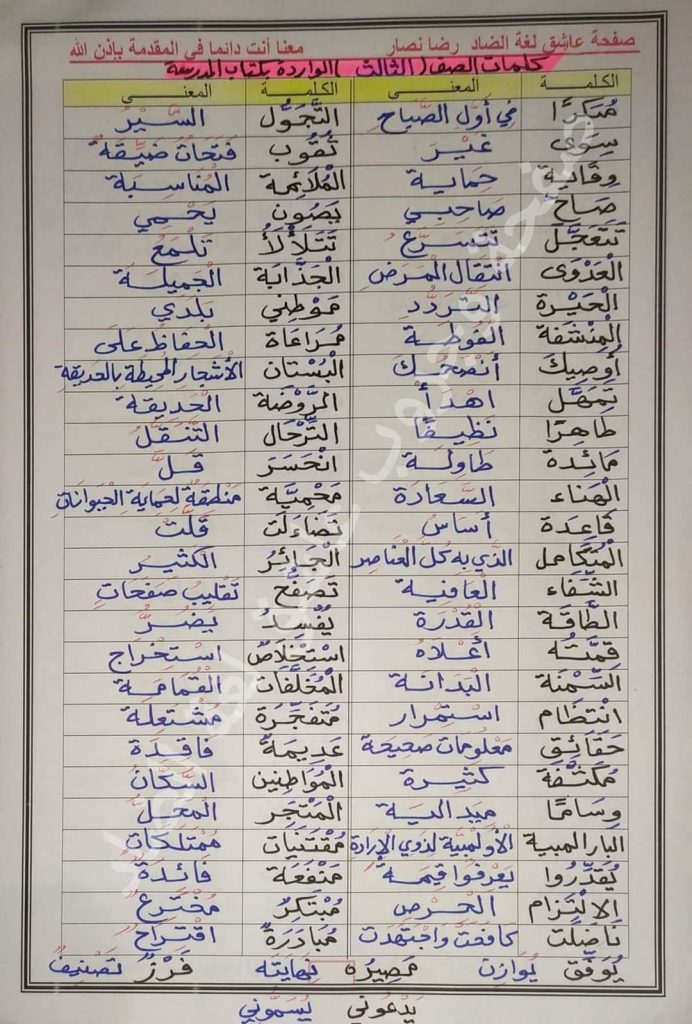 صفحة عاشق لغة الضاد رضا نصار معنا أنت دائما في المقدمة بإذن الله
كلمات الصف (الثالث) الواردة بكتاب المدرسة
الكلمة المعنى الكلمة المعنى
مُبَكِّرًا في أَوَّلِ الصَّبَاحِ التَّجَوُّلُ السَّيْرُ
سِوَى غَيْرَ ثُقُوب فَتَحَاتٌ ضَيِّقَةٌ
وِقَايَة حِمَايَة الْمُلَائِمَة الْمُنَاسِبَة
صَاحِ صَاحِبِي يَصُون يَحْمِي
تَتَعَجَّلْ تَتَسَرَّعْ تَتَلَأْلَأُ تَلْمَعُ
الْعَدْوَى انْتِقَالُ الْمَرَضِ الْجَذَّابَة الْجَمِيلَة
الْحَيْرَة التَّرَدُّد مَوْطِنِي بَلَدِي
الْمِنْشَفَة الْفُوطَة مُرَاعَاة الْحِفَاظُ عَلَى
أُوصِيكَ أَنْصَحُكَ الْبُسْتَان الْأَشْجَارُ الْمُحِيطَةُ بِالْحَدِيقَةِ
تَمَهَّلْ اهْدَأْ الرَّوْضَة الْحَدِيقَة
طَاهِرًا نَظِيفًا التَّرْحَال التَّنَقُّلُ
مَائِدَة طَاوِلَة انْحَسَرَ قَلَّ
الْهَنَاء السَّعَادَة مَحْمِيَّة مَنْطِقَةٌ لِحِمَايَةِ الْحَيَوَانَاتِ
قَاعِدَة أَسَاسُ تَضَاءَلَتْ قَلَّتْ
الْمُتَكَامِل الَّذِي بِهِ كُلُّ الْعَنَاصِرِ الْجَائِرُ الْكَثِيرُ
الشِّفَاء الْعَافِيَة تَصَفُّح تَقْلِيبُ صَفَحَاتٍ
الطَّاقَة الْقُدْرَة يُفْسِدُ يَضُرُّ
قِمَّتُهُ أَعْلَاهُ اسْتِخْلَاصُ اسْتِخْرَاج
السِّمْنَة الْبَدَانَة الْمُخَلَّفَات الْقُمَامَة
انْتِظَام اسْتِمْرَار مُتَفَجِّرَة مُشْتَعِلَة
حَقَائِق مَعْلُومَات صَحِيحَة عَدِيمَةٌ فَاقِدَة
مُكَثَّفَة كَثِيرَة الْمُوَاطِنِينَ السُّكَّانُ
وِسَامًا مِيدَالِيَة الْمَتْجَر الْمَحَلُّ
البارالمبية الْأُولِمْبِيَّة لِذَوِي الْإِرَادَةِ مُقْتَنَيَات مُمْتَلَكَات
يُقَدِّرُوا يَعْرِفُوا قِيمَة مَنْفَعَة فَائِدَة
الِالْتِزَام الْحِرْص مُبْتَكِرٌ مُخْتَرِع
نَاضَلَت كَافَحَتْ وَاجْتَهَدَت مُبَادَرَة اقْتِرَاح
يُوَفِّق يُوَازِن مَصِيرُه نِهَايَتُه فَرْزٌ تَصْنِيفٌ
يَدْعُونِي يُسَمُّونِي